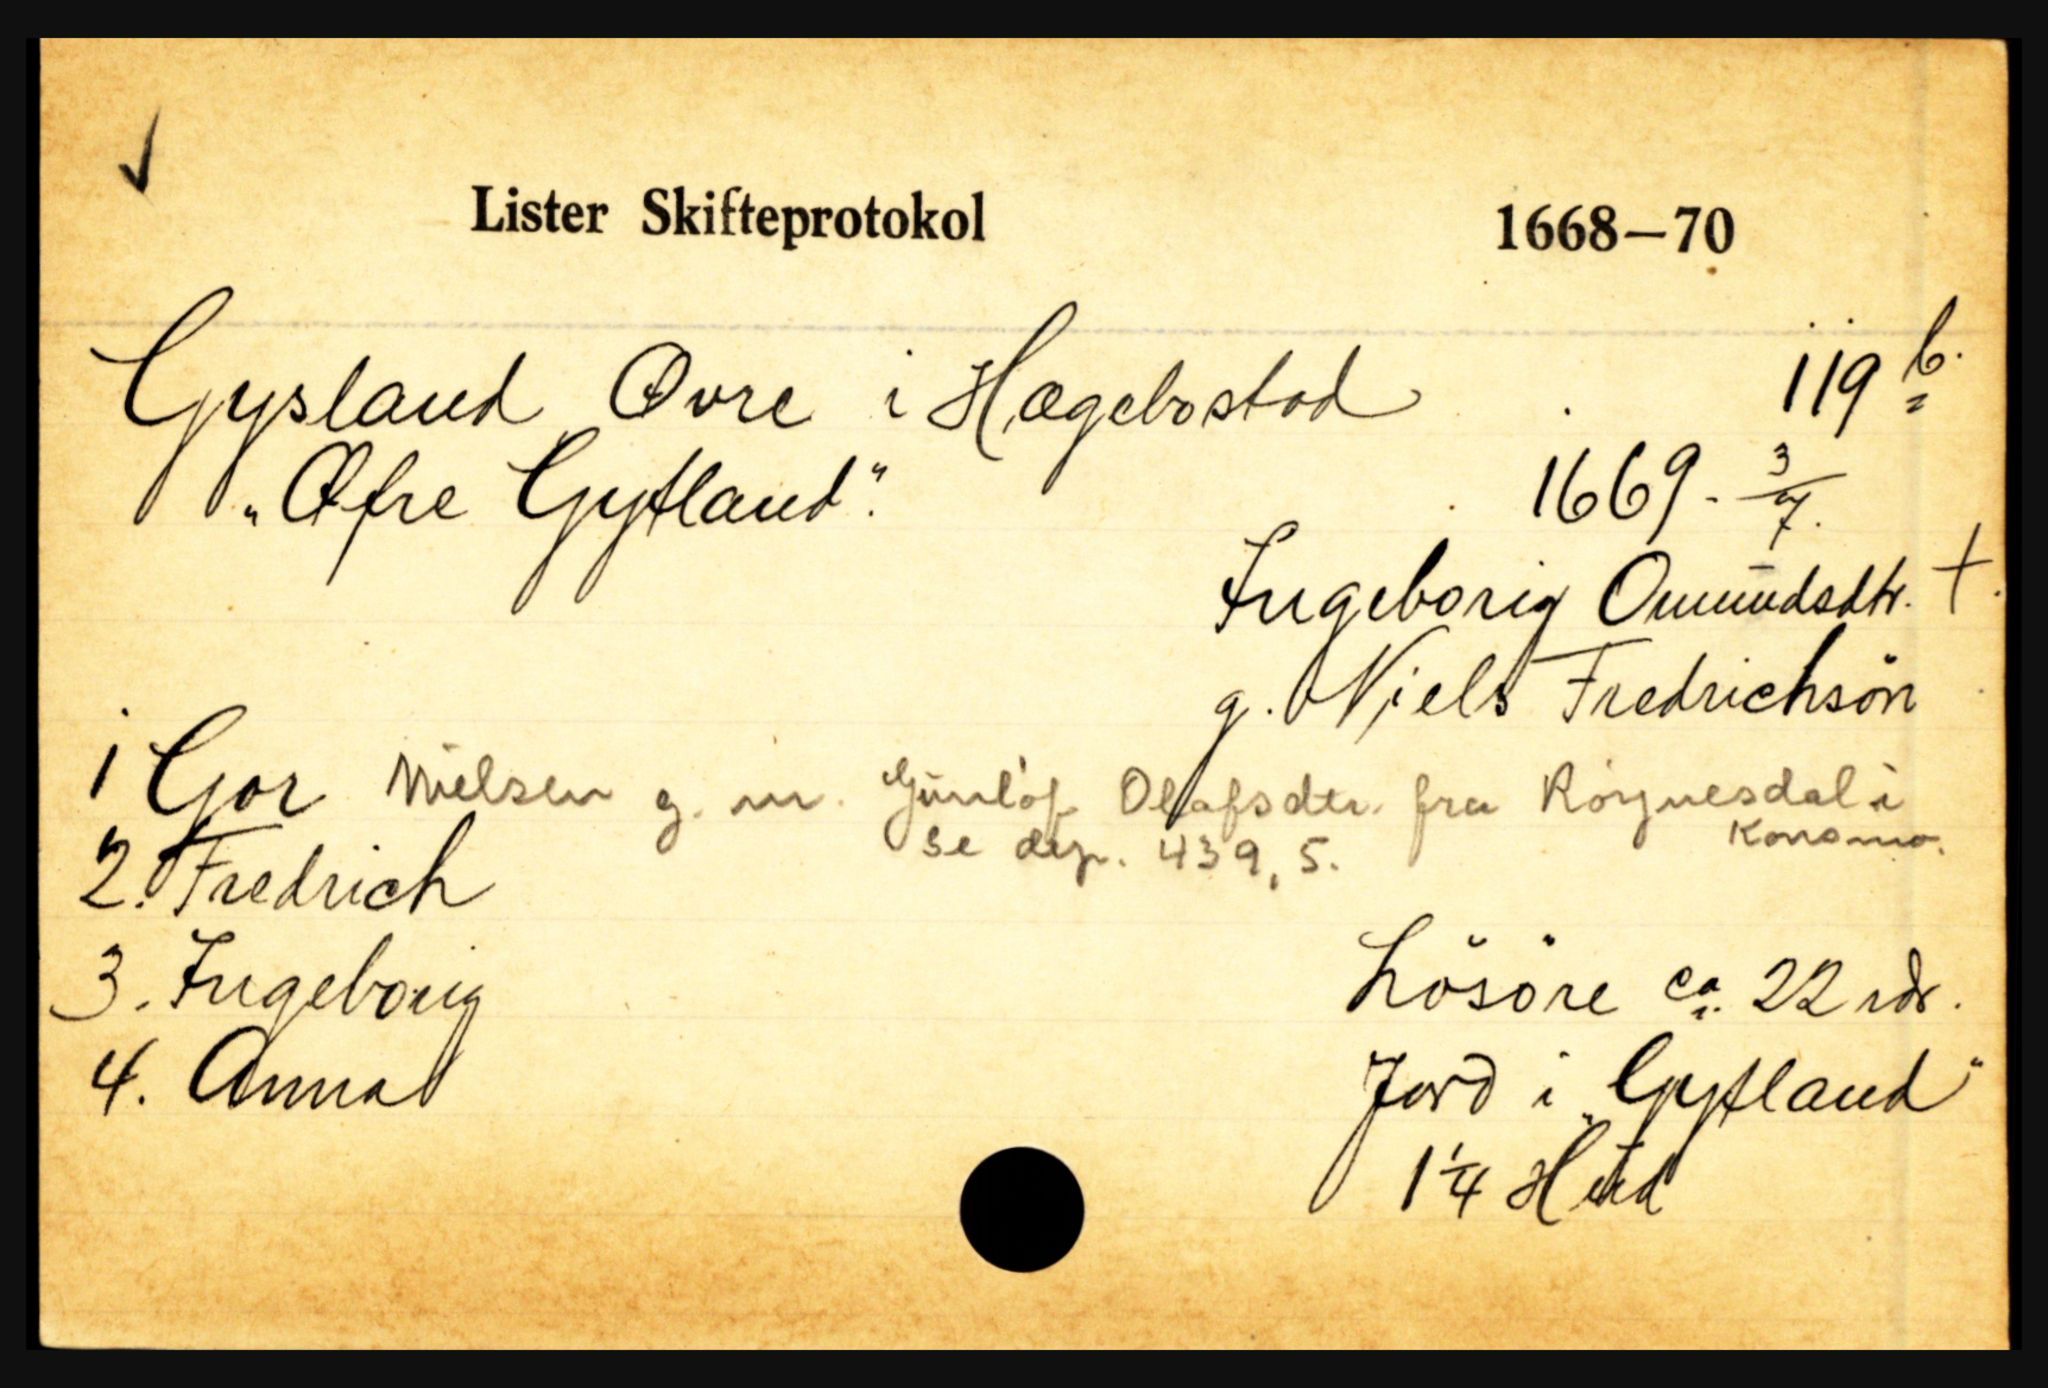 Lister Skifteprotokol 1668—70
Gysland Øvre i Hægebostad 119 b.
"Øfre Gytland". 1669. 3/7.
Ingeborig Omundsdtr. +.
g. Niels Fredrichsön
1 Gor Nielsen g. m. Gunlöf Olafsdtr. fra Röynesdal i
Konsmo.
Se dep. 439, 5.
2. Fredrich
3. Ingeborig
4. Anna
Lösöre ca. 22 rdr.
Jord i "Gytland"
1 1/4 Hud